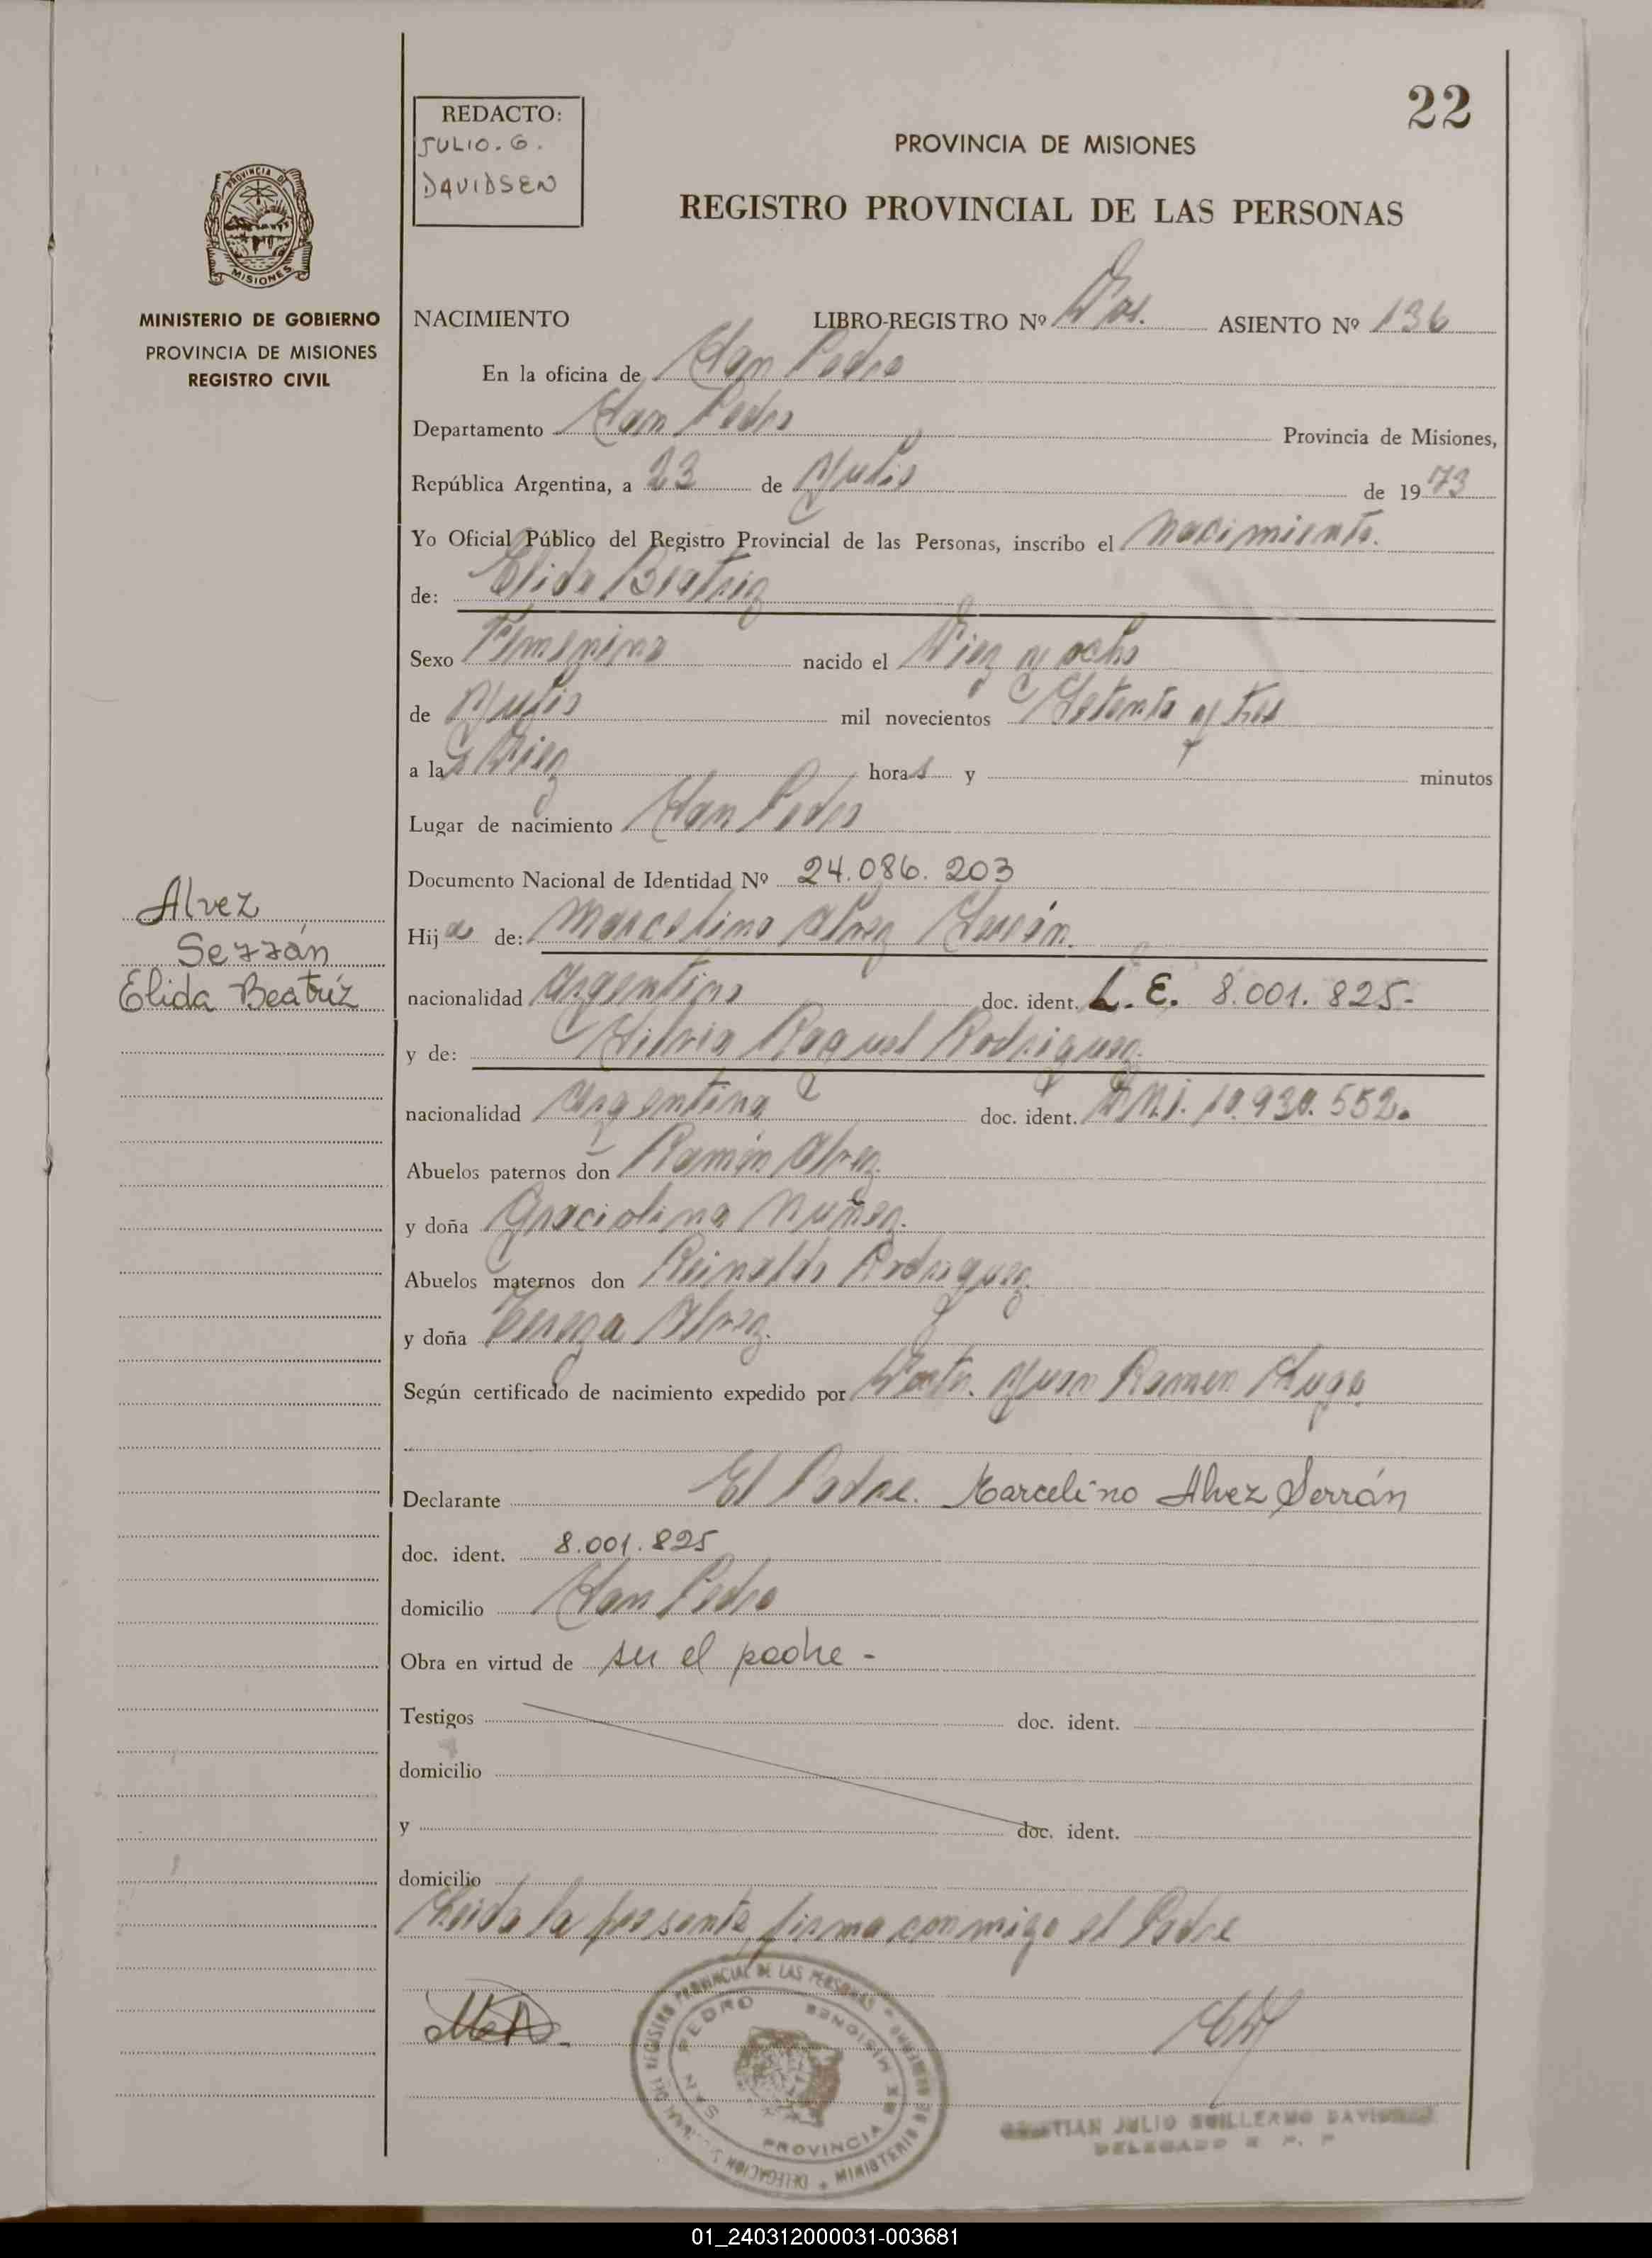 22
REDACTO:
JULIO. G.
DAVIDSEN
PROVINCIA DE MISIONES
REGISTRO PROVINCIAL DE LAS PERSONAS
PROVINCIA DE
MISIONES
MINISTERIO DE GOBIERNO
PROVINCIA DE MISIONES
REGISTRO CIVIL
NACIMIENTO LIBRO-REGISTRO Nº Dos. ASIENTO Nº 136
En la oficina de San Pedro
Departamento San Pedro Provincia de Misiones,
República Argentina, a 23 de Julio de 1973
Yo Oficial Público del Registro Provincial de las Personas, inscribo el Nacimiento.
de: Elida Beatriz
Sexo Femenino nacido el Diez y ocho
de Julio mil novecientos Setenta y tres
a las Diez horas y minutos
Lugar de nacimiento San Pedro
Documento Nacional de Identidad Nº 24.086.203
Alvez
Serrán
Elida Beatríz
Hija de: Marcelino Alvez Serrán.
nacionalidad Argentino doc. ident. L.E. 8.001.825-
y de: Silvia Raquel Rodriguez
nacionalidad Argentina doc. ident. D.N.I. 10.930.552.
Abuelos paternos don Ramón Alvez.
y doña Graciolina Nuñez.
Abuelos maternos don Reinaldo Rodriguez
y doña Tereza Alvez.
Según certificado de nacimiento expedido por Juan Ramon Lugo
Declarante El Padre. Marcelino Alvez Serrán
doc. ident. 8.001.825
domicilio San Pedro
Obra en virtud de ser el padre -
Testigos doc. ident.
domicilio
y doc. ident.
domicilio
Leida la presente, firma conmigo el Padre
REGISTRO PROVINCIAL DE LAS PERSONAS
SAN PEDRO
PROVINCIA DE MISIONES
DELEGACION
CRISTIAN JULIO GUILLERMO DAVIDSEN
DELEGADO R. P. P.
01_240312000031-003681